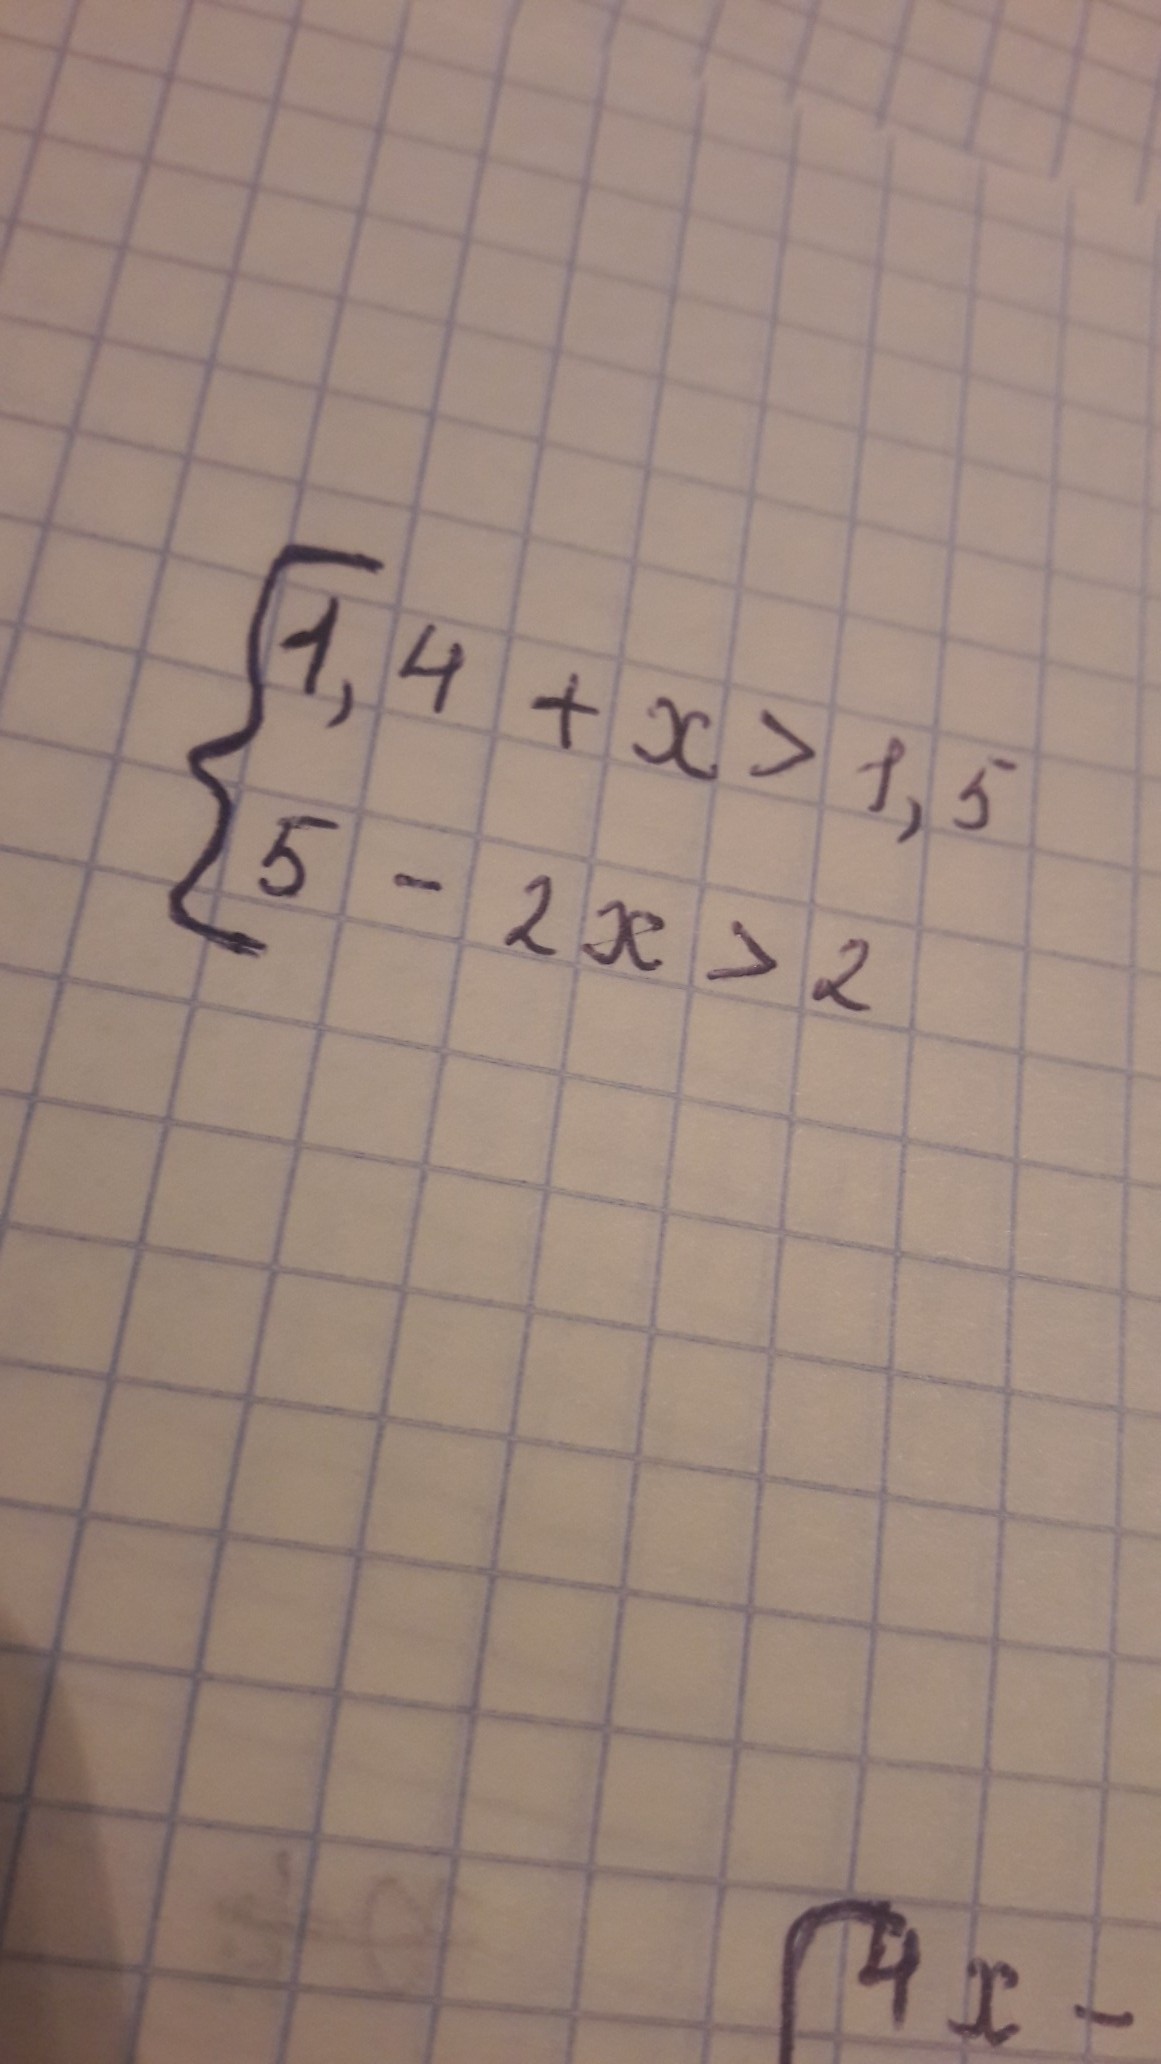 1,4 + x > 1,5
5 - 2x > 2
4x -